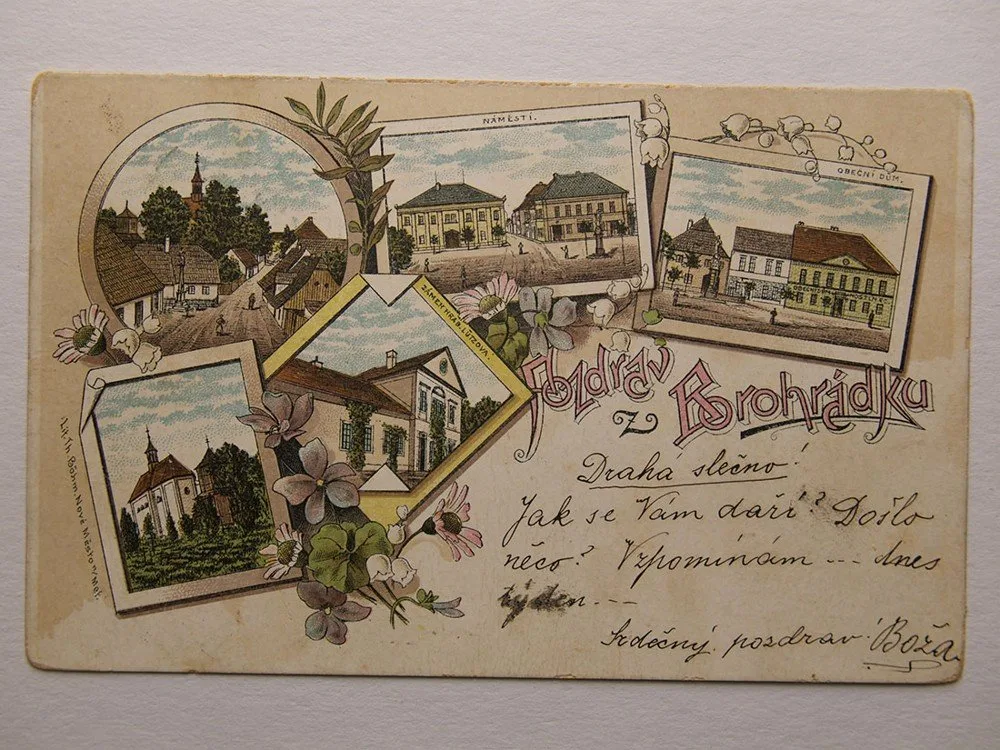 NÁMĚSTÍ.
OBECNÍ DŮM.
ZÁMEK HRAB. LÜTZOVA.
Pozdrav
z Borohrádku
Lit. Th. Böhm Nové Město n/Met.
Drahá slečno!
Jak se Vám daří? Došlo
něco? Vzpomínám --- dnes
týden ---
Srdečný pozdrav! Boža